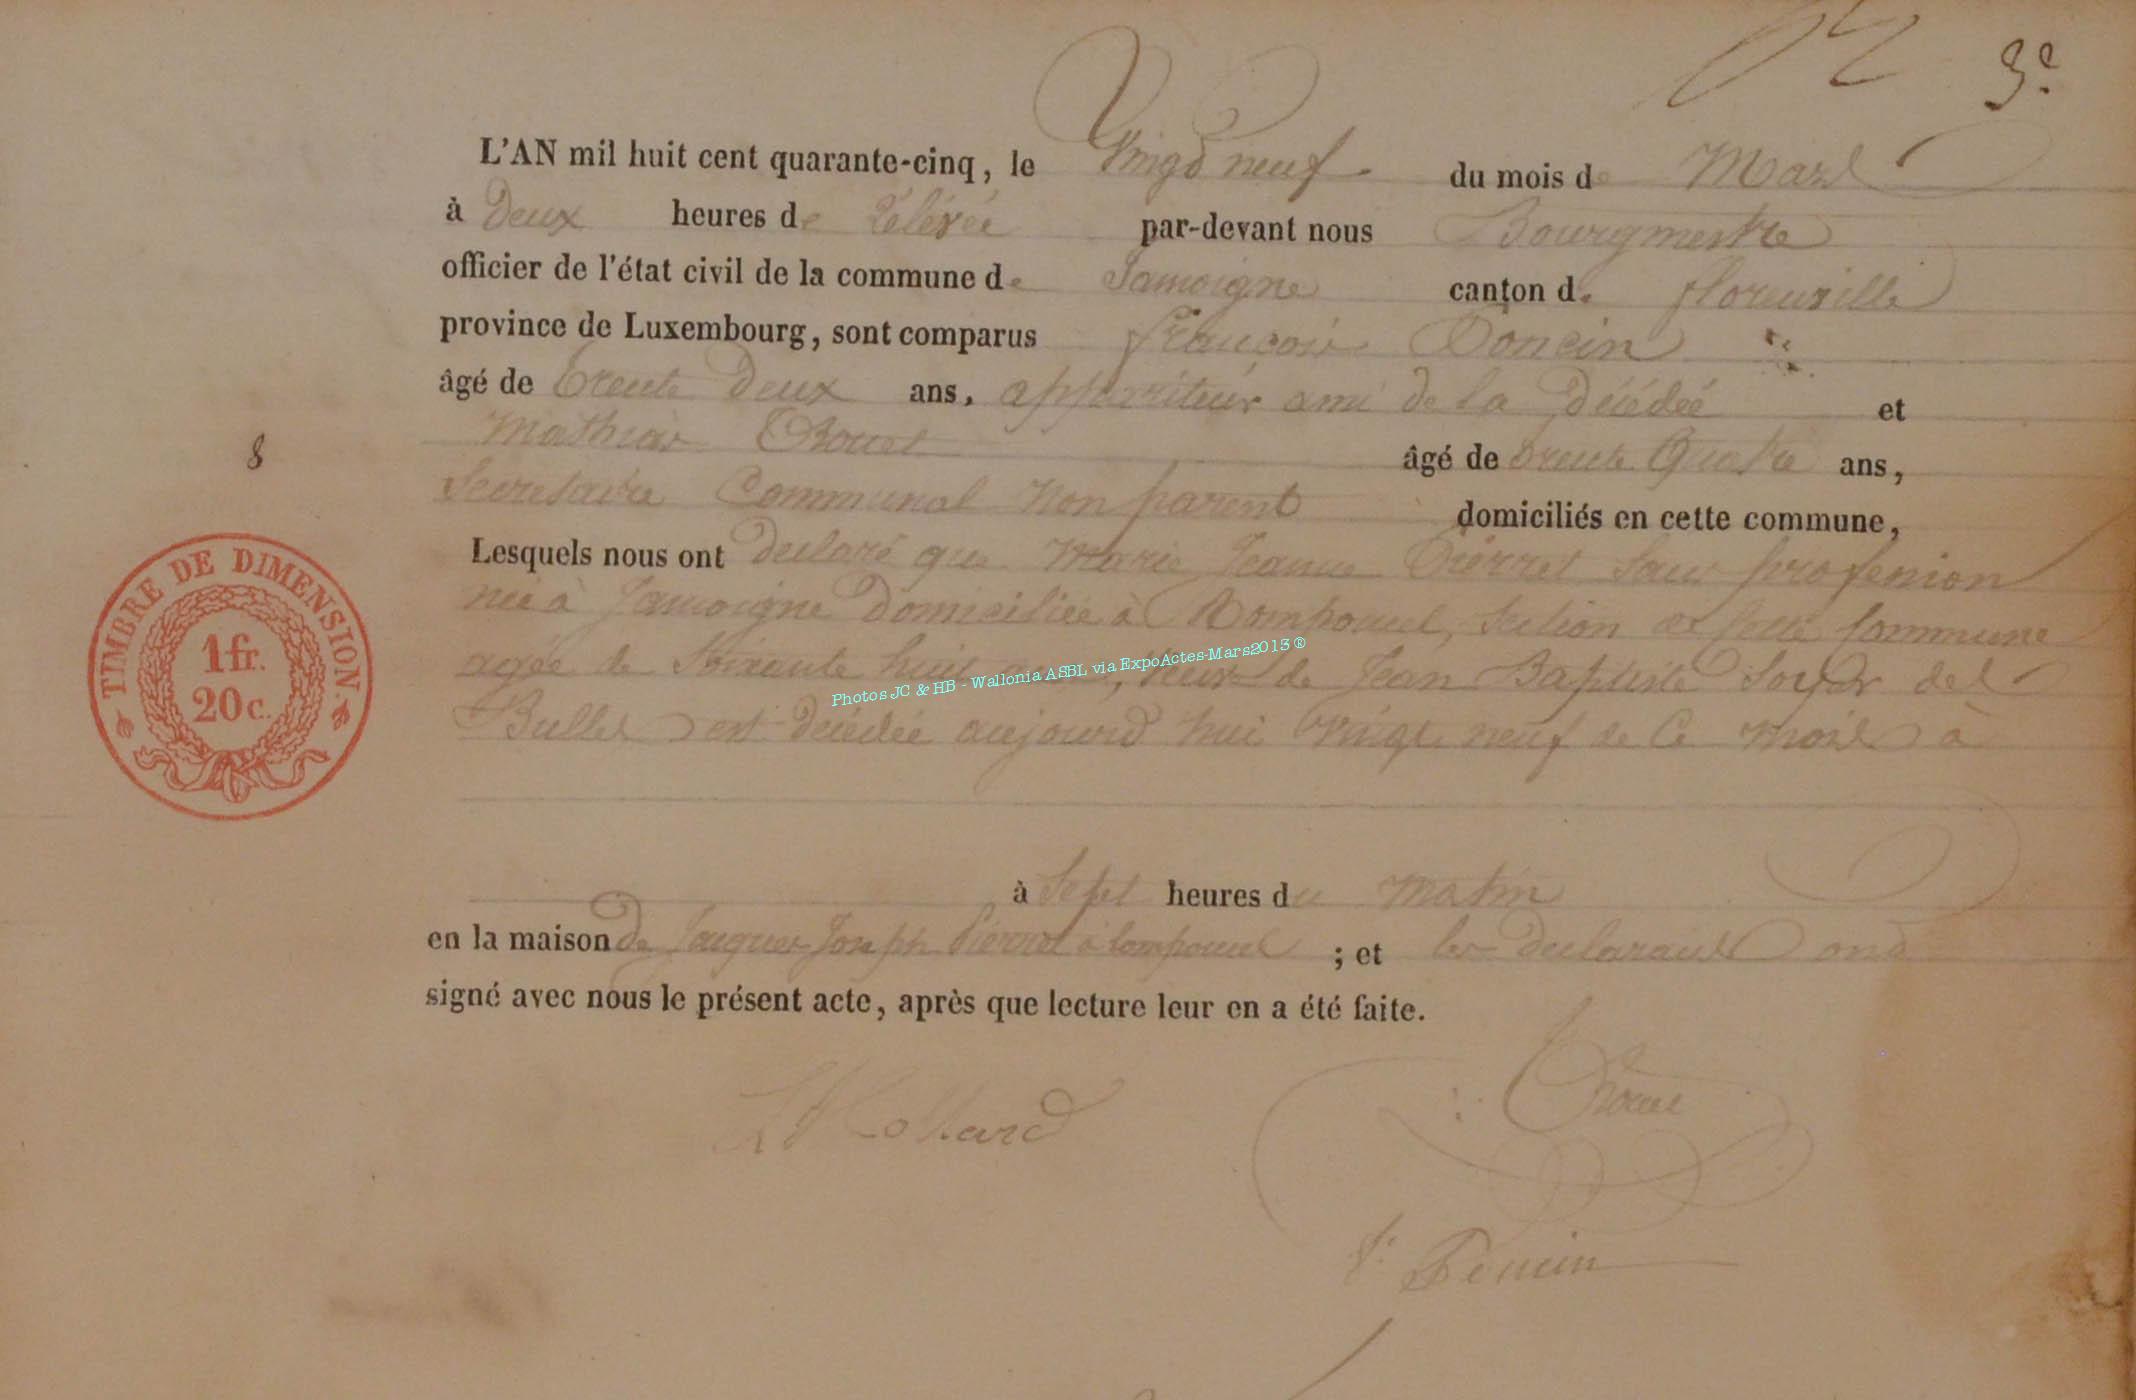 3e
L'AN mil huit cent quarante-cinq, le Vingt neuf du mois de Mars
à Deux heures de Relévée par-devant nous Bourgmestre
officier de l'état civil de la commune de Jamoigne canton de florenville
province de Luxembourg, sont comparus françois
âgé de trente Deux ans, appariteur ami de la Décédée et
Mathias âgé de trente Quatre ans,
8
Secretaire Communal Non parent domiciliés en cette commune,
Lesquels nous ont declaré que Marie Jeanne Pierret Sans profession
née à Jamoigne Domiciliée à Section de Cette Commune
agée de Soixante huit ans, veuve de Jean Baptiste de
Bulles est Décédée aujourd hui Vingt neuf de Ce Mois à
à Sept heures du Matin
en la maison de Jacques Joseph Pierret à ; et les declarants ont
signé avec nous le présent acte, après que lecture leur en a été faite.
Collard
TIMBRE DE DIMENSION.
1 fr.
20 c.
Photos JC & HB - Wallonia ASBL via ExpoActes-Mars2013 ®